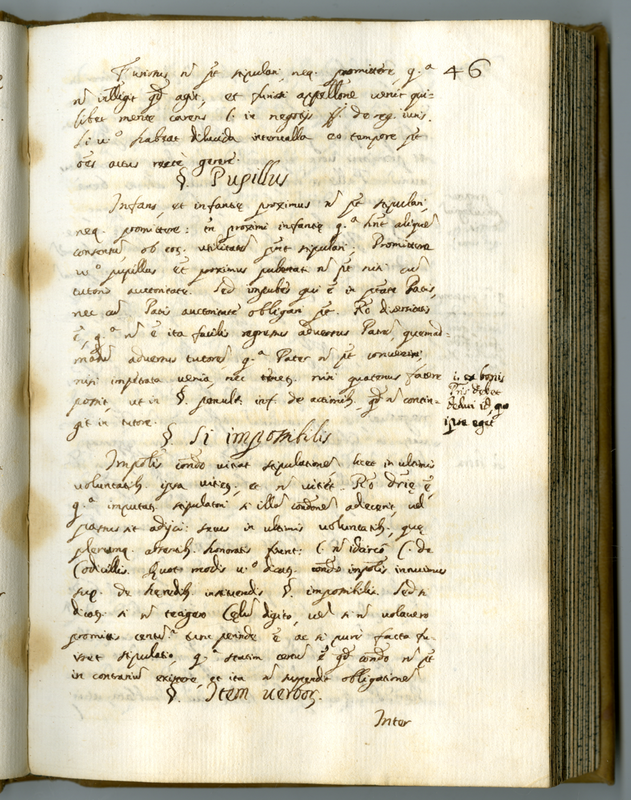 Furiosus n̄ pt̄ stipulari, neq. promittere, q.ᵃ 46
n̄ intelligit qd̄ agit, et furiosi appellōne venit qui-
libet mente carens l. in negotijs ff. de reg. iuris.
Si v.º habeat dilucida intervalla eo tempore pt̄
oēs actus recte gerere.
§. Pupillus
Infans, et infantię proximus n̄ pt̄ stipulari,
neq. promittere: in proximi infantię q.ᵃ hn̄t aliquē
consensū ob eoꝝ utilitatē pn̄t stipulari. Promittere
v.º pupillus et proximus pubertati n̄ pt̄ nisi cū
tutoris auctoritate. Sed impubes qui ē in ptāte Patris,
nec cū Patris auctoritate obligari pt̄. Rō diversitatis
ē, q.ᵃ n̄ ē ita facilis regressus adversus Patrē quemad-
modū adversus tutorē q.ᵃ Pater n̄ pt̄ conveniri,
nisi impetrata venia, nec tenet. nisi quatenus facere
possit, ut in §. penult. inf. de actionib, qd̄ n̄ contin-
git in tutore.
ii. ex bonis
debet
ipse eget
§. Si impossibilis
Impōlis condō vitiat stipulationē licet in ultimis
voluntatib. ipsa vitiet, et n̄ vitiet. Rō dr̄ię ē,
q.ᵃ imputat. stipulatori si illā condōnē adiecerit, vel
passus sit adijci: secus in ultimis voluntatib, quę
plerunq. honoratis fiunt: l. n̄ idcirco C. de
Codicillis. Quot modis v.º dicat. condō impōlis innuimus
sup. de heredib. instituendis §. impossibilis. Sed si
dicat. si n̄ tetigero Cęlū digito, vel si n̄ volavero
promittis centū? tunc perinde ē ac si pure facta fu-
isset stipulatio, q.ᵃ statim certū ē qd̄ condō n̄ pt̄
in contrariū existere et ita n̄ suspendit obligationē
§. Item verboꝝ.
Inter